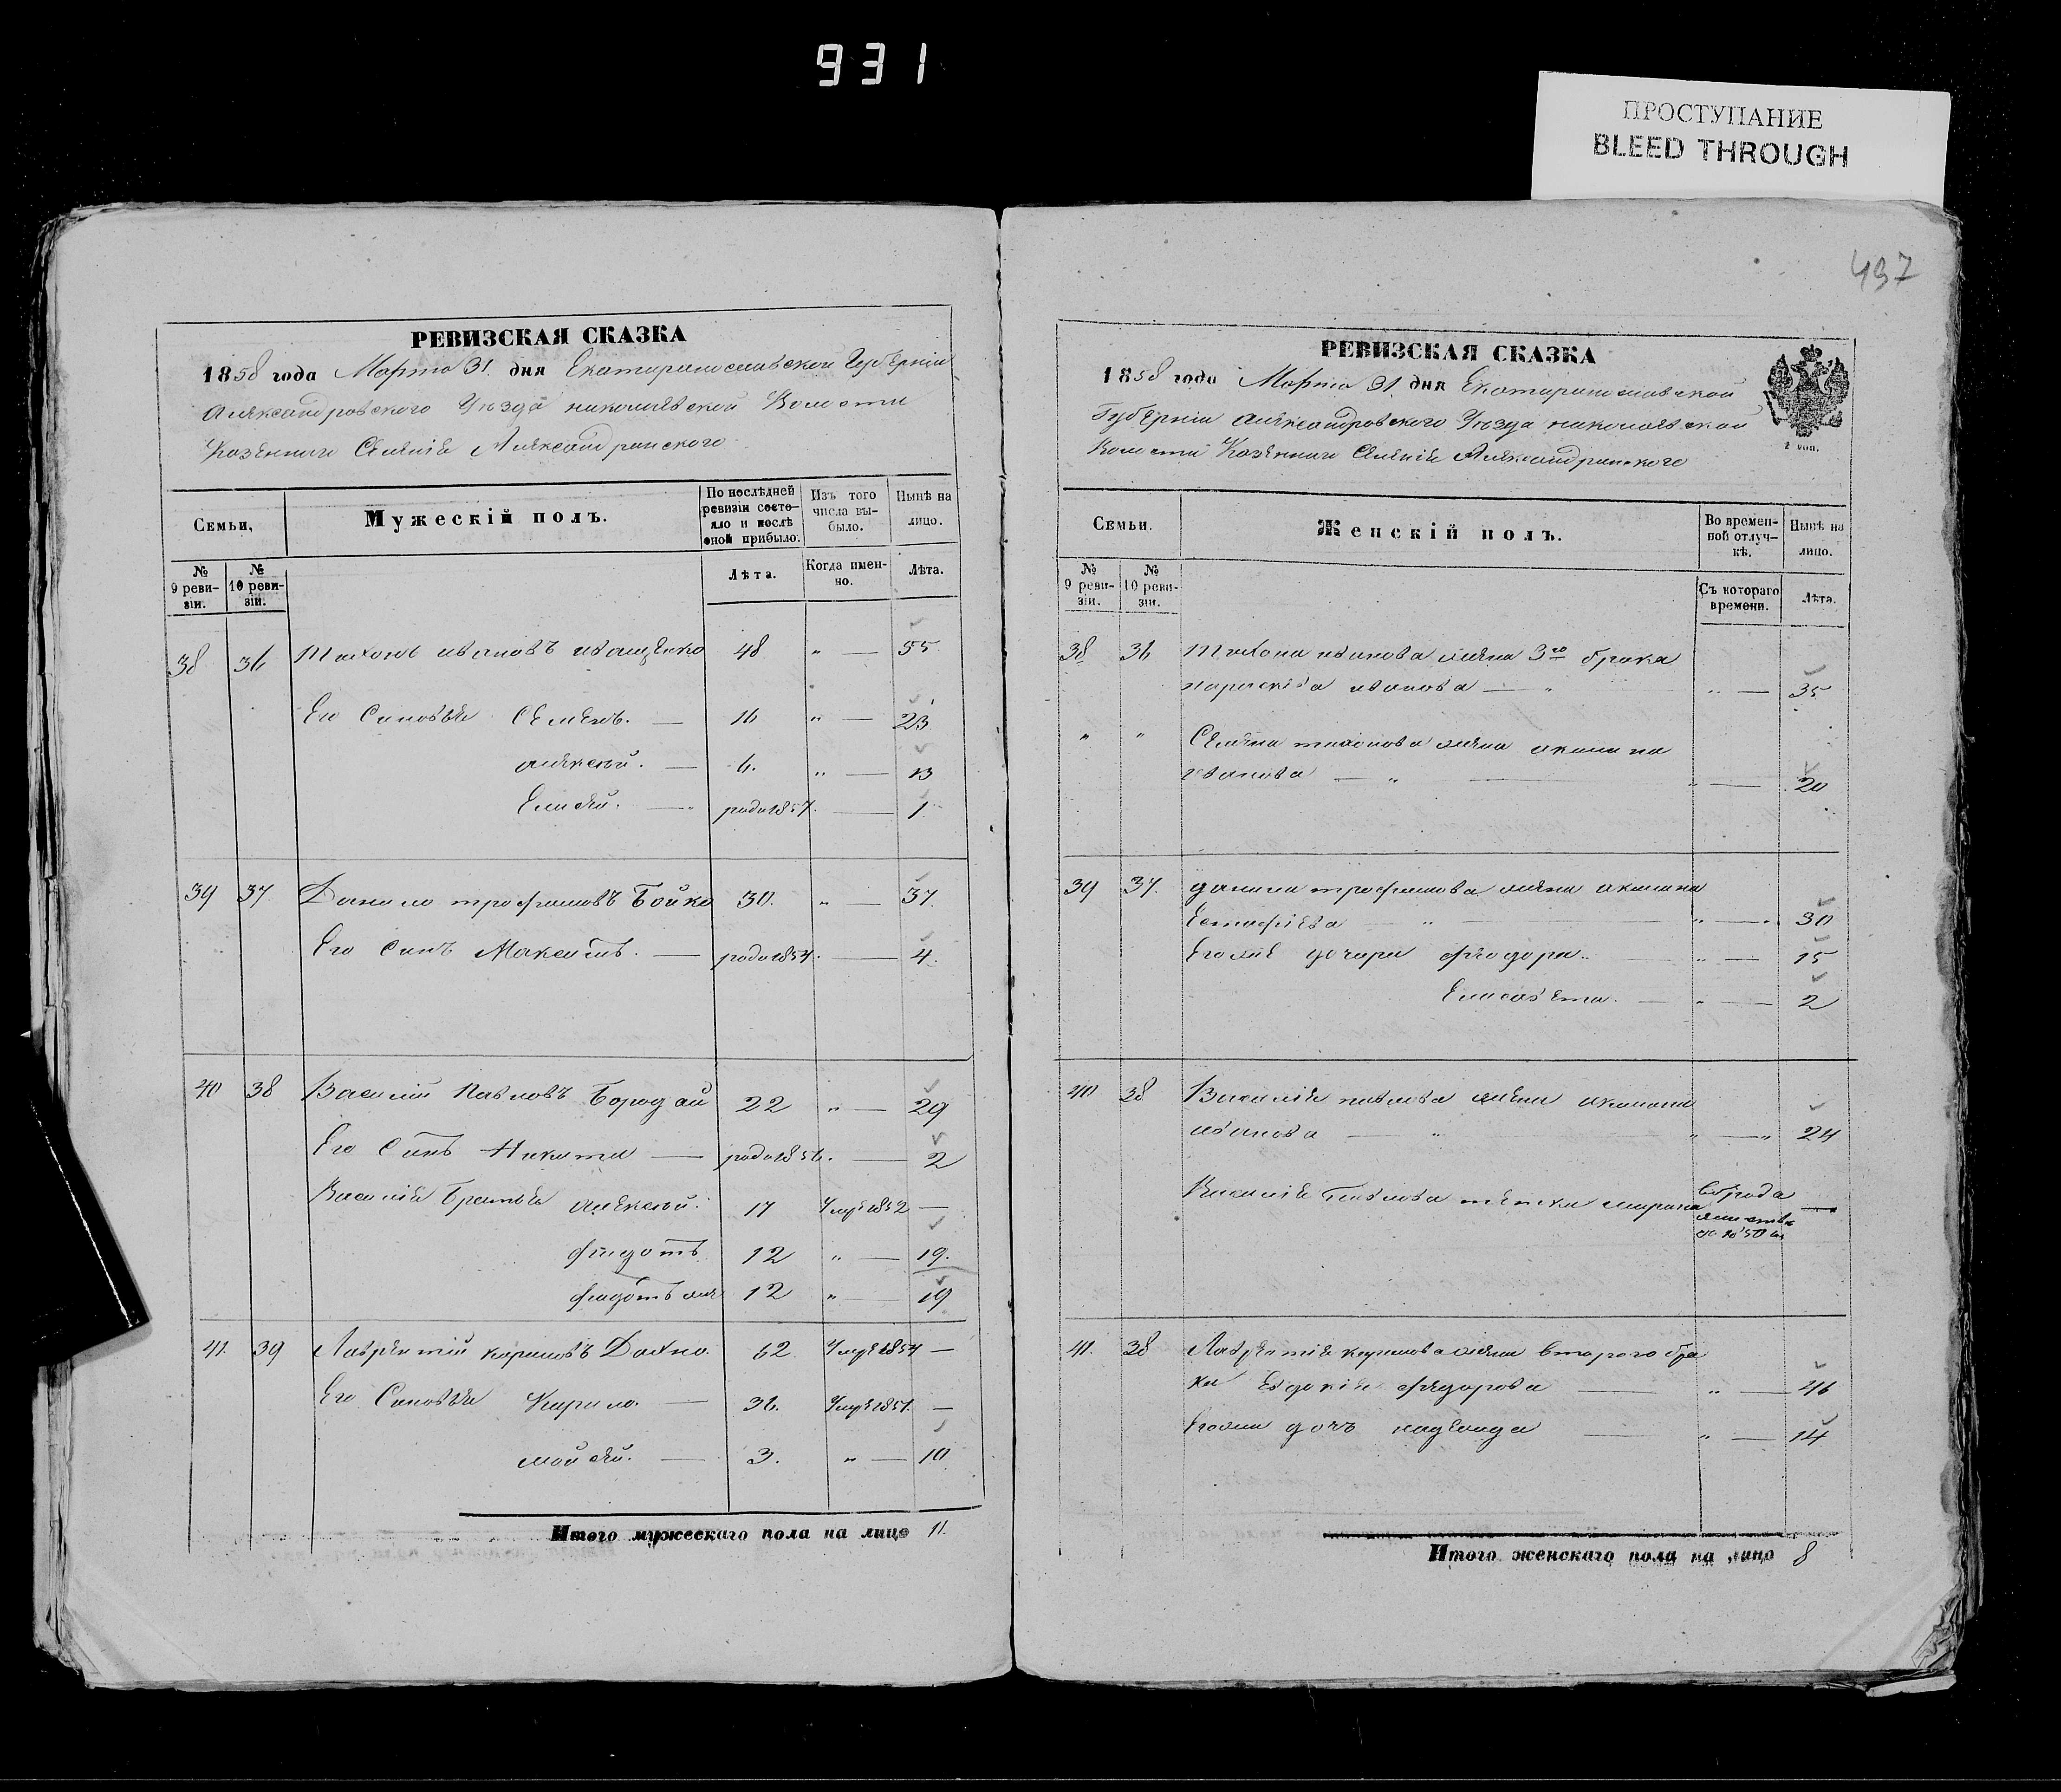 931
ПРОСТУПАНИЕ
BLEED THROUGH
497
РЕВИЗСКАЯ СКАЗКА
1858 года Марта 31. дня Екатеринославской Губерніи
Александровского Уезда николаевской Волости
Казенного Селенія Александринского
Семьи,
Мужескій полъ.
По послѣдней ревизіи состояло и послѣ оной прибыло.
Изъ того числа выбыло.
Нынѣ на лицо.
№ 9 ревизіи.
№ 10 ревизіи.
Лѣта.
Когда именно.
Лѣта.
38 36 Тихонъ ивановъ иващенко 48 " — 55
Его Сыновья Семенъ. — 16 " — 23
алексей. — 6. " — 13
Елисей. — родо 1857. — 1
39 37 Данило трофимовъ Бойко 30. " — 37.
Его Сынъ Максимъ. — родо 1854. — 4.
40 38 Василий Павловъ Бородай 22 " — 29
Его Сынъ Никита — родо 1856. — 2
Василія Братья алексей. 17 Умре 1852 —
федотъ 12 " — 19.
федотъ же 12 " — 19
41. 39 Лаврентій кириловъ Дахно. 62. Умре 1854 —
Его Сыновья Кирило. — 36. Умре 1851. —
мойсей. — 3. " — 10
Итого мужескаго пола на лицо 11.
РЕВИЗСКАЯ СКАЗКА
1858 года Марта 31. дня Екатеринославской
Губерніи александровского Уезда николаевской
Волости Казенного Селенія Александринского
2 коп.
Семьи.
Женскій полъ.
Во временной отлучкѣ.
Нынѣ на лицо.
№ 9 ревизіи.
№ 10 ревизіи.
Съ котораго времени.
Лѣта.
38 36 Тихона иванова жена 3го брака
параскева иванова — " " — 35
" " Семена тихонова жена акилина
иванова — " — " — 20
39 37. данила трофимова жена акилина
Естафіева " " — 30
Его же дочери феодора. " — 15
Елисавета. — " — 2
40 38 Василія павлова жена акилина
иванова — " " — " 24
Василія Павлова тетка марина
41. 38 Лаврентія кирилова жена второго бра
ка Евдокія федорова — " — 46
Его же дочь надежда — " — 14
Итого женскаго пола на лицо 8